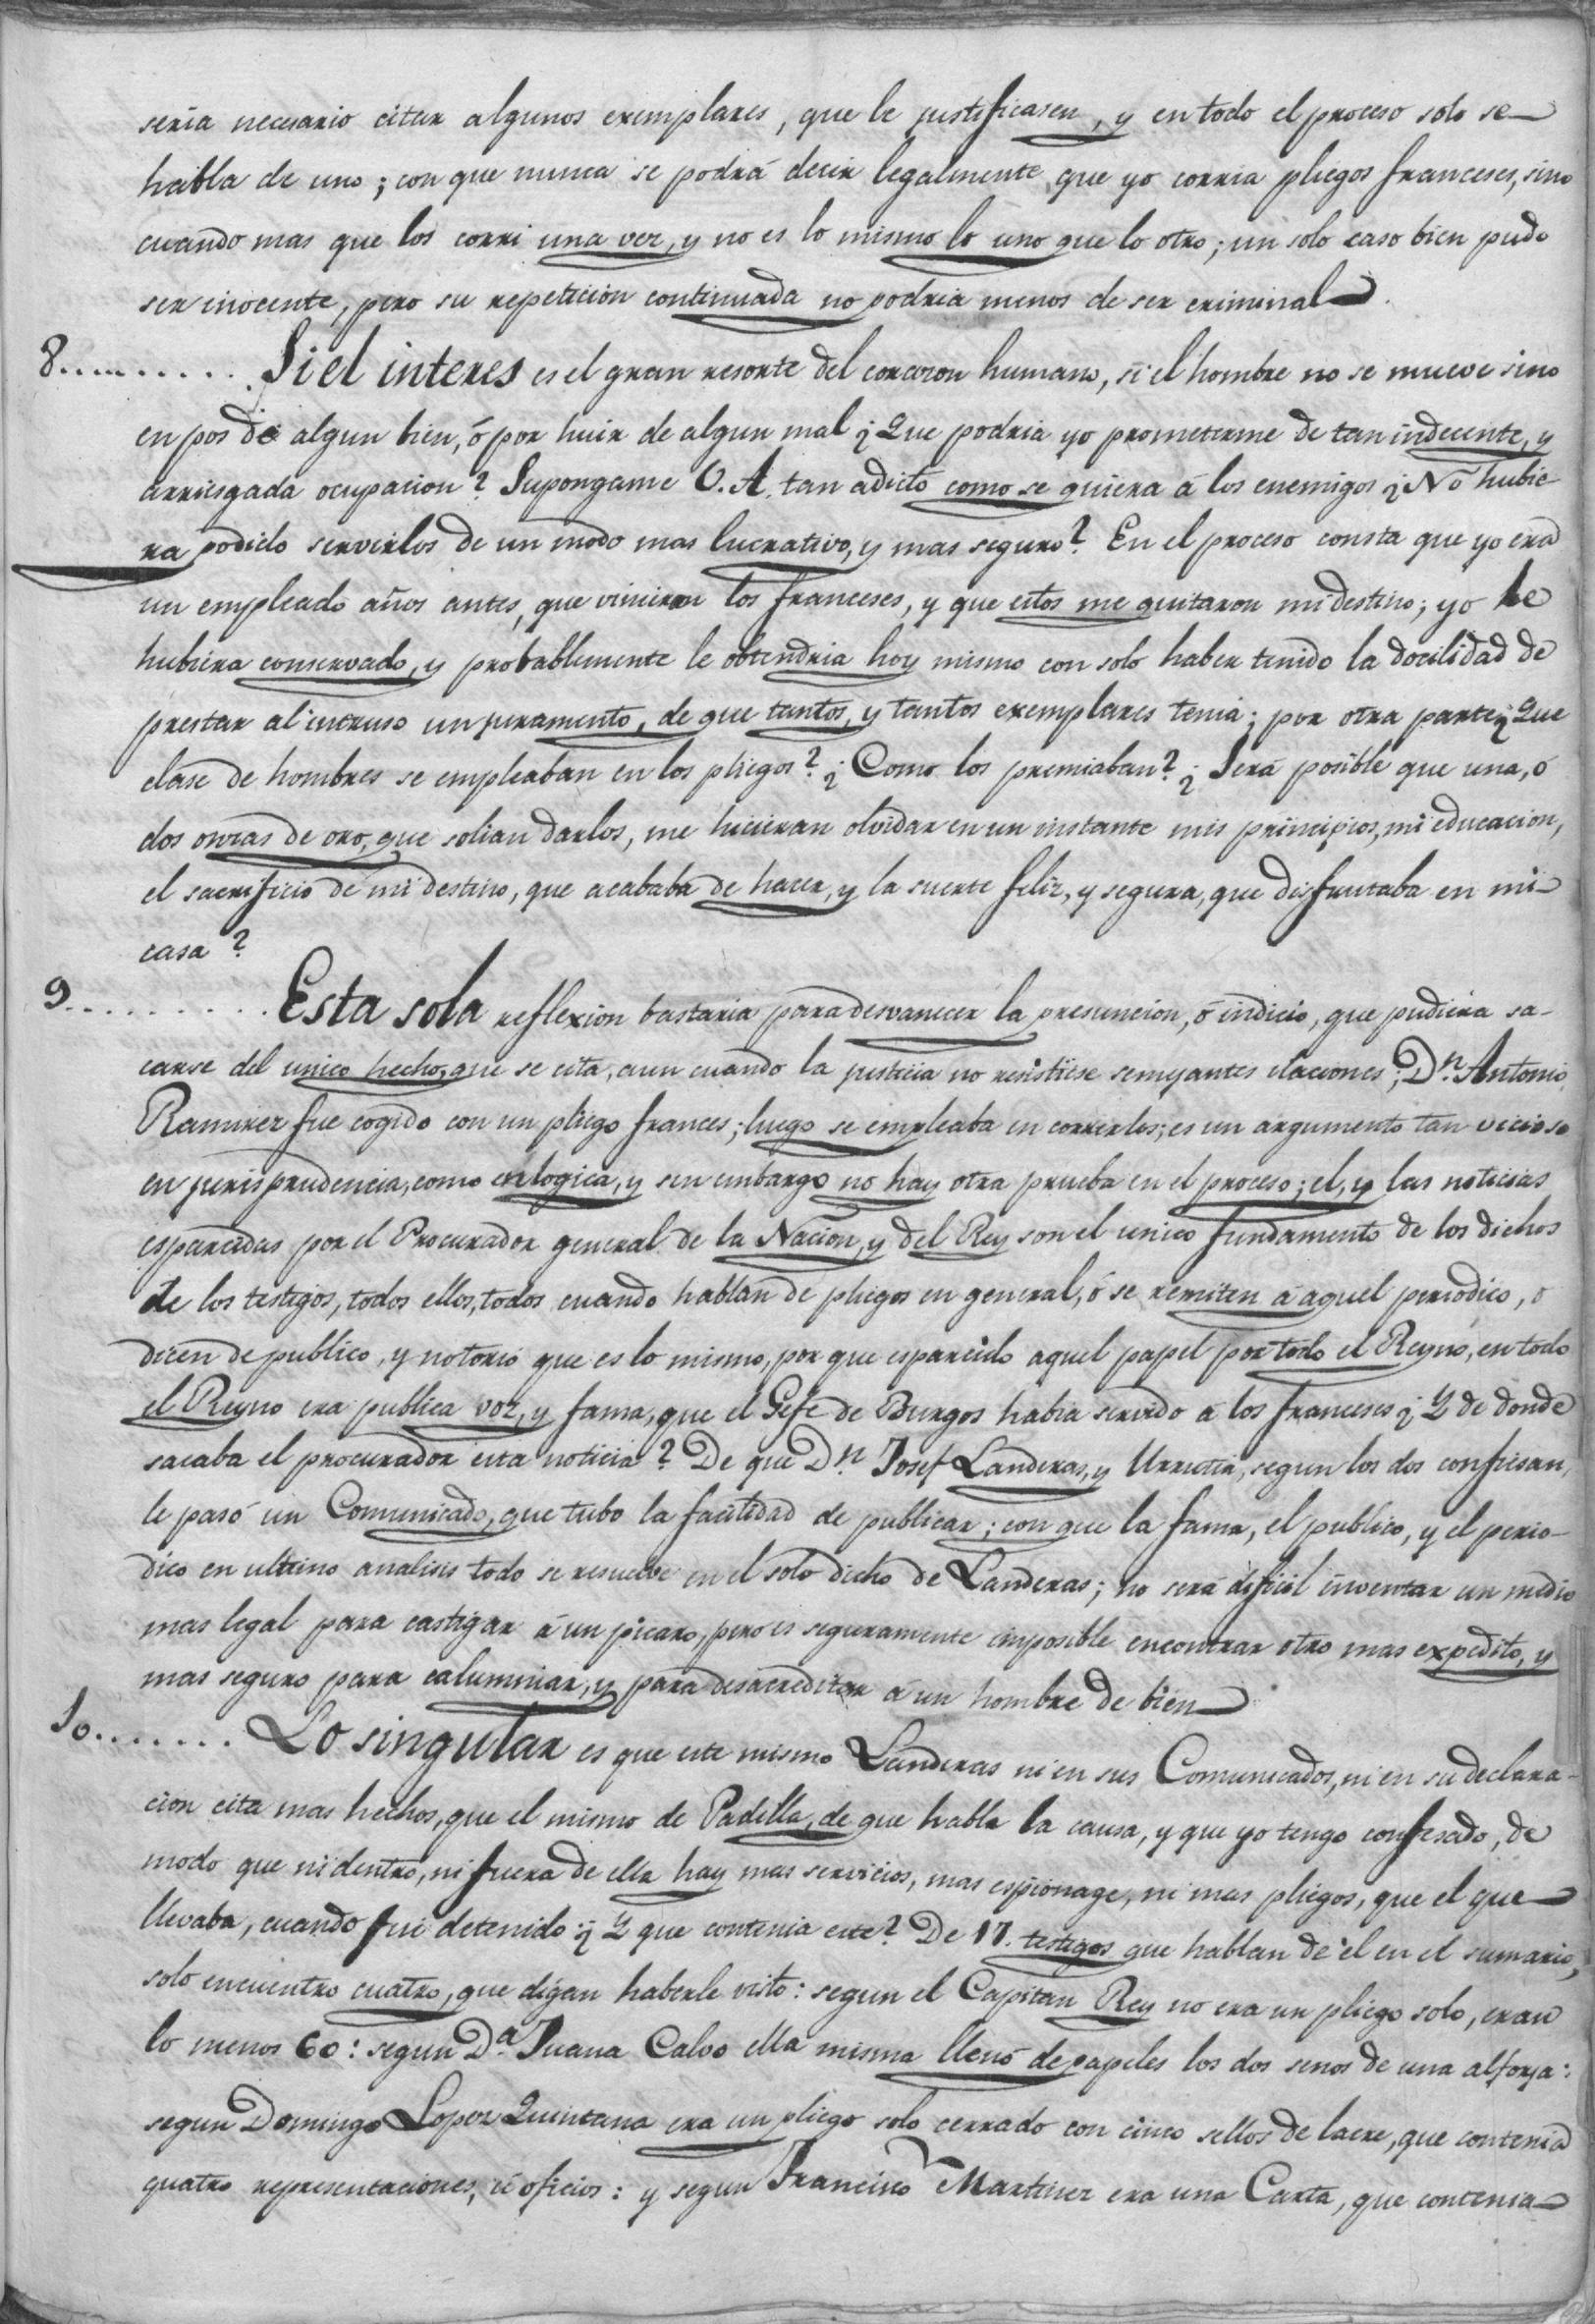 seria necesario citar algunos exemplares, que le justificasen, y en todo el proceso solo se
habla de uno; con que nunca se podrá decir legalmente, que yo corria pliegos franceses, sino
cuando mas que los corri una vez, y no es lo mismo lo uno que lo otro; un solo caso bien pudo
ser inocente, pero su repeticion continuada no podria menos de ser criminal.
8.......... Si el interes es el gran resorte del corazon humano, si el hombre no se mueve sino
en pos de algun bien, ó por huir de algun mal ¿Que podria yo prometerme de tan indecente, y
arriesgada ocupacion? Supongame V. A. tan adicto como se quiera á los enemigos ¿No hubie-
ra podido servirlos de un modo mas lucrativo, y mas seguro? En el proceso consta que yo era
un empleado años antes, que vinieran los franceses, y que estos me quitaron mi destino; yo le
hubiera conservado, y probablemente le obtendria hoy mismo con solo haber tenido la docilidad de
prestar al intruso un juramento, de que tantos, y tantos exemplares tenia; por otra parte ¿Que
clase de hombres se empleaban en los pliegos? ¿Como los premiaban? ¿Será posible que una, ó
dos onzas de oro, que solian darlos, me hicieran olvidar en un instante mis principios, mi educacion,
el sacrificio de mi destino, que acababa de hacer, y la suerte feliz, y segura, que disfrutaba en mi
casa?
9.......... Esta sola reflexion bastaria para desvanecer la presuncion, ó indicio, que pudiera sa-
carse del unico hecho, que se cita, aun cuando la justicia no resistiese semejantes ilaciones; Dn. Antonio
Ramirez fue cogido con un pliego frances; luego se empleaba en correrlos; es un argumento tan vicioso
en jurisprudencia, como en logica, y sin embargo no hay otra prueba en el proceso; el, y las noticias
esparcidas por el Procurador general de la Nacion, y del Rey son el unico fundamento de los dichos
de los testigos, todos ellos, todos cuando hablan de pliegos en general, ó se remiten á aquel periodico, ó
dicen de publico, y notorio que es lo mismo, por que esparcido aquel papel por todo el Reyno, en todo
el Reyno era publica voz, y fama, que el Gefe de Burgos habia servido á los franceses ¿Y de donde
sacaba el procurador esta noticia? De que Dn. Josef Landeras, y Urrutia, segun los dos confiesan,
le pasó un Comunicado, que tubo la facilidad de publicar; con que la fama, el publico, y el perio-
dico en ultimo analisis todo se resuelve en el solo dicho de Landeras; no será dificil inventar un medio
mas legal para castigar á un picaro, pero es seguramente imposible encontrar otro mas expedito, y
mas seguro para calumniar, y para desacreditar á un hombre de bien.
10....... Lo singular es que este mismo Landeras ni en sus Comunicados, ni en su declara-
cion cita mas hechos, que el mismo de Padilla, de que habla la causa, y que yo tengo confesado, de
modo que ni dentro, ni fuera de ella hay mas servicios, mas espionage, ni mas pliegos, que el que
llevaba, cuando fui detenido; ¿Y que contenia este? De 17. testigos que hablan de él en el sumario,
solo encuentro cuatro, que digan haberle visto: segun el Capitan Rey no era un pliego solo, eran
lo menos 60: segun Da. Juana Calvo ella misma llenó de papeles los dos senos de una alforja:
segun Domingo Lopez Quintana era un pliego solo cerrado con cinco sellos de lacre, que contenia
quatro representaciones, ú oficios: y segun Francisco Martinez era una Carta, que contenia